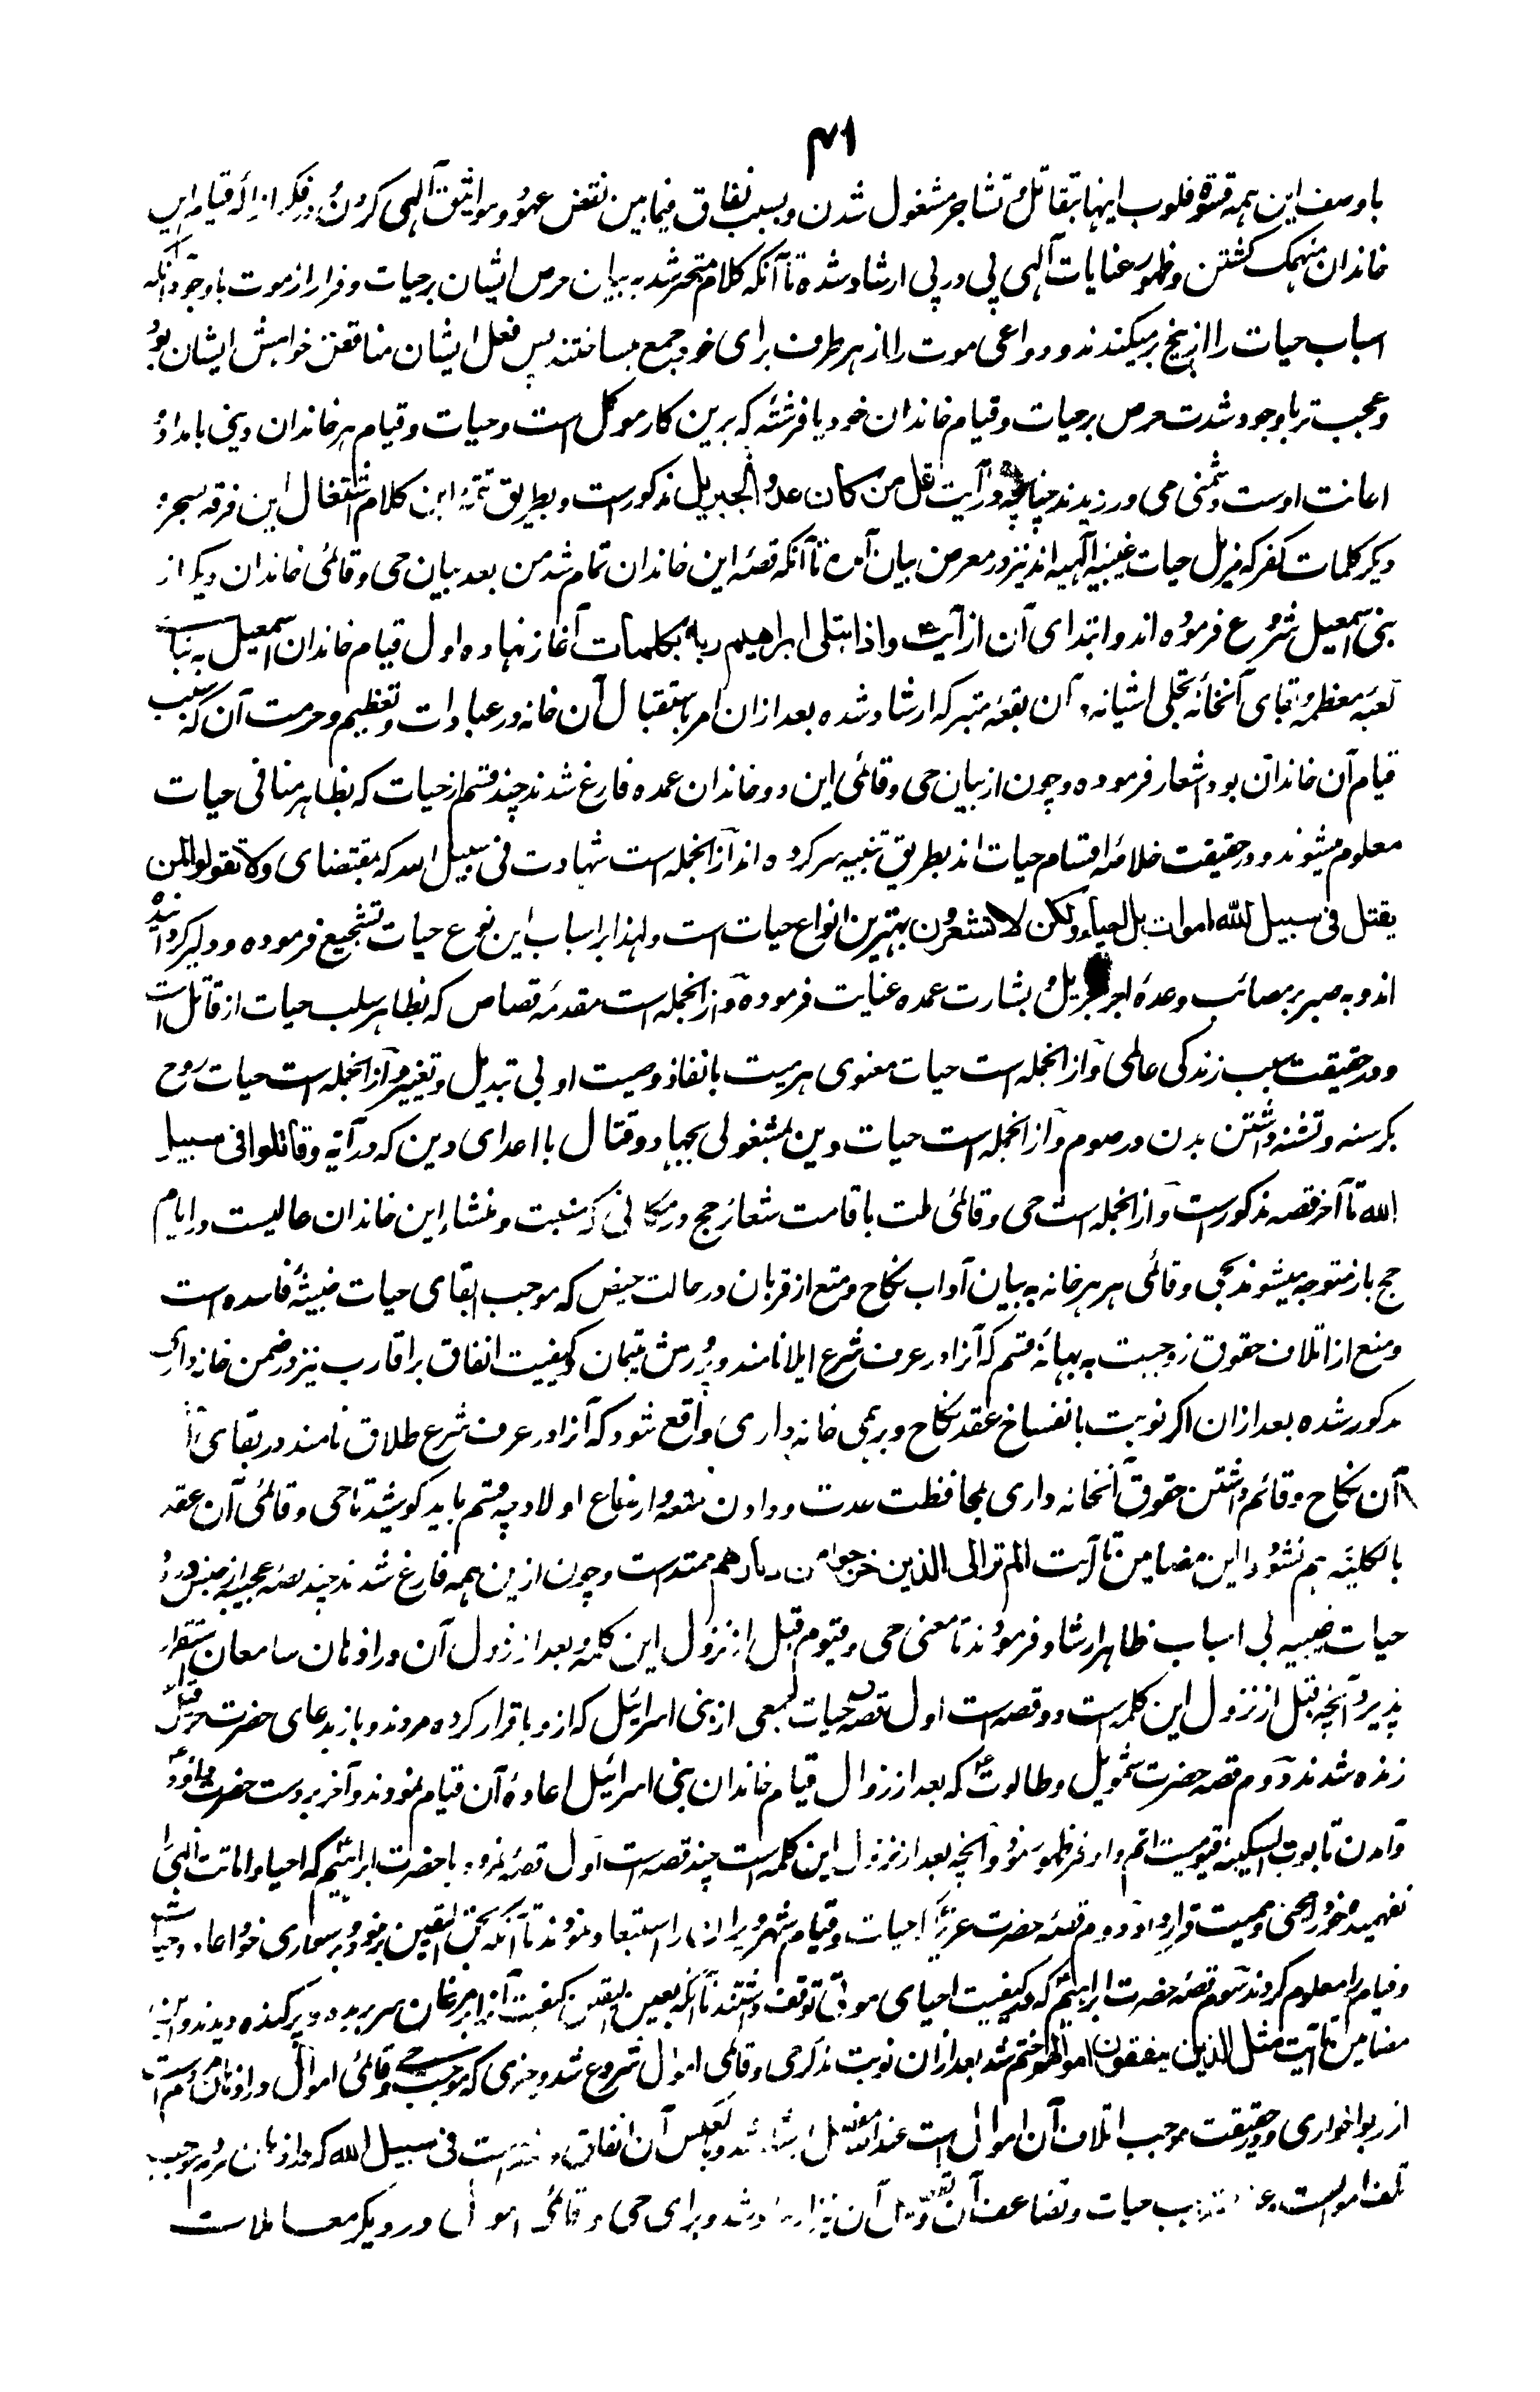 ۴۱
باوصف این همه قسوة قلوب اینها بتقاتل و تشاجر مشغول شدن و بسبب نفاق فیما بین نقض عهود و مواثیق آلهی کردن و در فکر ازاله قیام این
خاندان منهمک گشتن و ظهور عنایات آلهی پی در پی ارشاد شده تا آنکه کلام منجر شد به بیان حرص ایشان بر حیات و فرار از موت باوجود آنکه
اسباب حیات را از بیخ برمیکندند و دواعی موت را از هر طرف برای خود جمع میساختند پس فعل ایشان مناقض خواهش ایشان بود
و عجیب تر باوجود شدت حرص بر حیات و قیام خاندان خود با فرشته که برین کار موکل است و حیات و قیام هر خاندان دینی بامداد و
اعانت اوست دشمنی می ورزیدند چنانچه در آیت قل من کان عدوا لجبریل مذکورست و بطریق تتمهٔ این کلام اشتغال این فرقه بسحر و
دیگر کلمات کفر که مزیل حیات غیبیه آلهیه اند نیز در معرض بیان آمده تا آنکه قصهٔ این خاندان تمام شد من بعد بیان حی و قائمی خاندان دیگر از
بنی اسمعیل شروع فرموده اند و ابتدای آن از آیت واذ ابتلی ابراهیم ربه بکلمات آغاز نهاده اول قیام خاندان اسمعیل به بنای
کعبهٔ معظمه و بقای آنخانهٔ تجلی آشیانه در آن بقعهٔ متبرکه ارشاد شده بعد ازان امر باستقبال آن خانه در عبادات و تعظیم و حرمت آن که سبب
قیام آن خاندان بود اشعار فرموده و چون از بیان حی و قائمی این دو خاندان عمده فارغ شدند چند قسم از حیات که بظاهر منافی حیات
معلوم میشوند و در حقیقت خلاصهٔ اقسام حیات اند بطریق تنبیه سر کرده اند ازانجمله است شهادت فی سبیل الله که بمقتضای ولا تقولوا لمن
یقتل فی سبیل الله اموات بل احیاء ولکن لا تشعرون بهترین انواع حیات است ولهذا بر اسباب این نوع حیات تشجیع فرموده و دلیر گردانیده
اند و به صبر بر مصائب وعدهٔ اجر جزیل و بشارت عمده عنایت فرموده و ازانجمله است مقدمهٔ قصاص که بظاهر سلب حیات از قاتل است
و در حقیقت سبب زندگی عالمی و ازانجمله است حیات معنوی هر میت بانفاذ وصیت او بی تبدیل و تغییر و ازانجمله است حیات روح
بگرسنه و تشنه داشتن بدن در صوم و ازانجمله است حیات دین بمشغولی بجهاد و قتال با اعدای دین که در آیه وقاتلوا فی سبیل
الله تا آخر قصه مذکورست و ازانجمله است حی و قائمی ملت باقامت شعائر حج در مکانی که منبت و منشاء این خاندان عالیست در ایام
حج باز متوجه میشوند بحی و قائمی هر هر خانه به بیان آداب نکاح و منع از قربان در حالت حیض که موجب ابقای حیات خبیثهٔ فاسده است
و منع از اتلاف حقوق زوجیت به بهانهٔ قسم که آنرا در عرف شرع ایلا نامند و پرورش یتیمان و کیفیت انفاق بر اقارب نیز در ضمن خانه داری
مذکور شده بعد ازان اگر نوبت بانفساخ عقد نکاح و برهمی خانه داری واقع شود که آنرا در عرف شرع طلاق نامند در بقای
آن نکاح و قائم داشتن حقوق آنخانه داری بمحافظت عدت و دادن متعه و ارضاع اولاد چه قسم باید کوشید تا حی و قائمی آن عقد
بالکلیه هم نشود و این مضامین تا آیت الم تر الی الذین خرجوا من دیارهم ممتدست و چون ازین همه فارغ شدند چند قصه عجیبه از جنس
حیات غیبیه بی اسباب ظاهر ارشاد فرمودند تا معنی حی و قیوم قبل از نزول این کلمه و بعد از نزول آن در اذهان سامعان استقرار
پذیرد و آنچه قبل از نزول این کلمه است دو قصه است اول قصه حیات جمعی از بنی اسرائیل که از وبا فرار کرده مردند و باز بدعای حضرت حزقیل
زنده شدند دوم قصه حضرت شمویل و طالوت که بعد از زوال قیام خاندان بنی اسرائیل اعاده آن قیام نمودند و آخر بر دست حضرت داود
و آمدن تابوت السکینه قیومیت اتم و اوفر ظهور نمود و آنچه بعد از نزول این کلمه است چند قصه است اول قصهٔ نمرود با حضرت ابراهیم که احیا و اماتت آلهی را
نفهمیده خود را محیی و ممیت قرار داد دوم قصه حضرت عزیر احیات و قیام شهر ویران را استبعاد نمودند تا آنکه بحق الیقین بر خود و بر سواری خود
و قیام را معلوم کردند سوم قصهٔ حضرت ابراهیم که در کیفیت احیای موتی توقف داشتند تا آنکه بعین الیقین کیفیت از مرغان سر بریده و پر کنده دیدند و این
مضامین تا آیت مثل الذین ینفقون اموالهم ختم شد بعد ازان نوبت ذکر حی و قائمی اموال شروع شد و چیزی که موجب حی و قائمی اموال در اذهان مردم است
از ربوا خواری و در حقیقت موجب اتلاف آن اموال است عند الله مفصل بیان شد و بعکس آن انفاق فی سبیل الله که در اذهان مردم موجب
تلف اموالست حیات و تضاعف آن آن نیز ارشاد شد و برای حی و قائمی اموال در دیگر معاملات